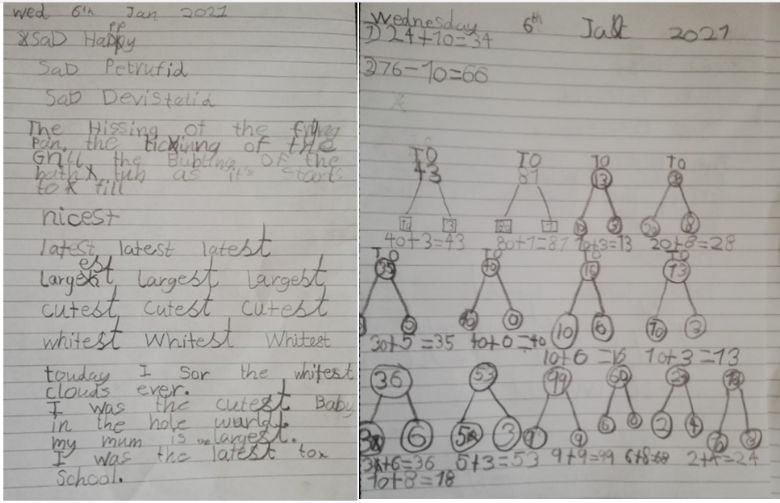 wed 6th Jan 2021
SaD Happy
SaD Petrufid
SaD Devistatid
The Hissing of the frying
Pan. the tickining of the
Grill the Bubling of the
bath tub as it's starts
to fill
nicest
latest latest latest
Largest Largest Largest
cutest Cutest Cutest
whitest Whitest Whitest
touday I Sor the whitest
clouds ever.
I was the cutest Baby
in the hole warld.
my mum is the largest.
I was the latest to
School.
Wednesday 6th Jan 2021
1) 24+10=34
2) 76-10=66
TO TO TO TO
43 81 13
40+3=43 80+1=81 10+3=13 20+8=28
TO TO TO TO
35 16 13
5 0 10 6 10 3
30+5=35 40+0=40
10+6=16 10+3=13
36 53 99 68
6 50 3 9 9 2 4
6=36 5+3=53 9+9=99 6+8=68 2+4=24
10+8=18